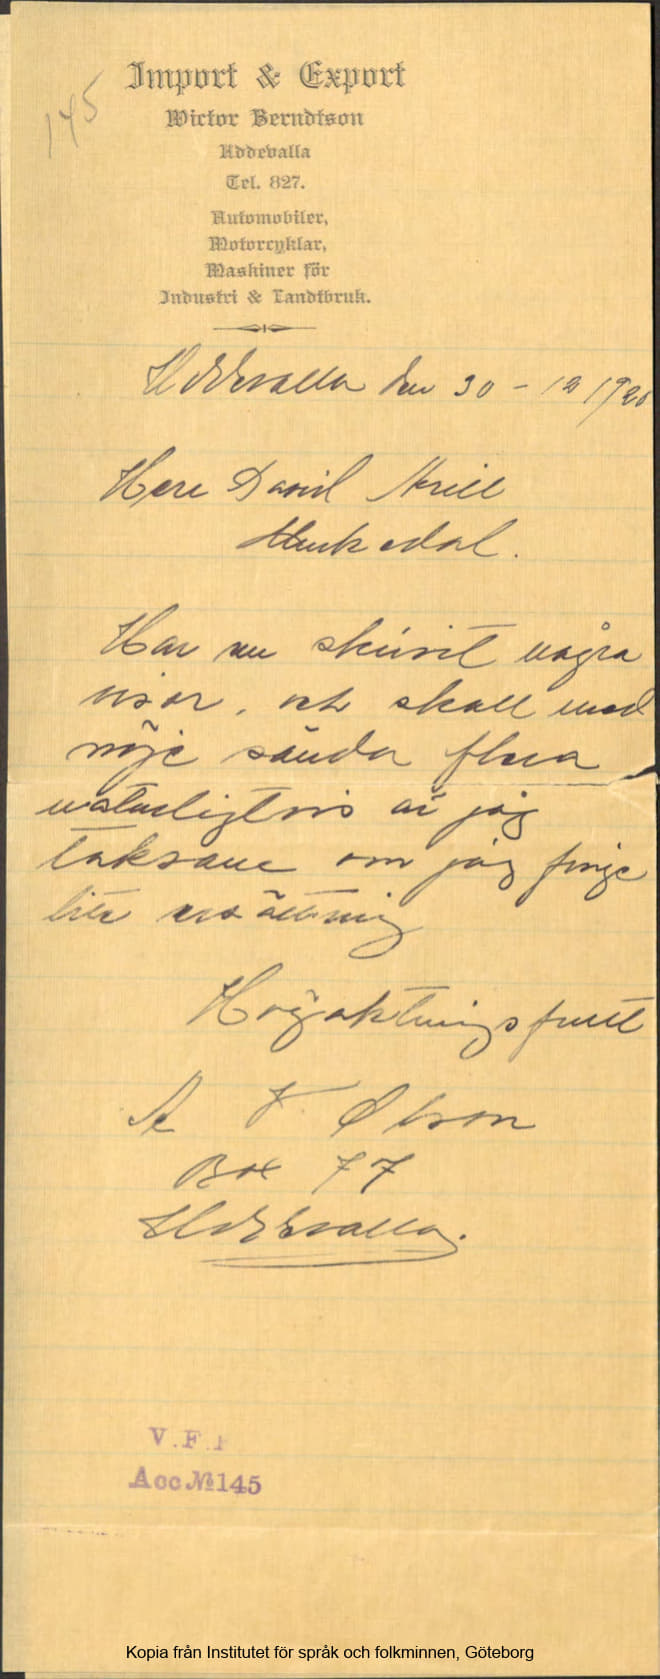 145
Import & Export
Wictor Berndtson
Uddevalla
Tel. 827.
Automobiler,
Motorcyklar,
Maskiner för
Industri & Landtbruk.
Uddevalla den 30 - 12 1920
Herr David
Munkedal.
Har nu skrivit några
visor, och skall med
nöje sända flera
naturligtvis är jag
taksam om jag finge
lite ersättning
Högaktningsfullt
A F Olson
Box 77
Uddevalla.
V.F.F
Acc №145
Kopia från Institutet för språk och folkminnen, Göteborg